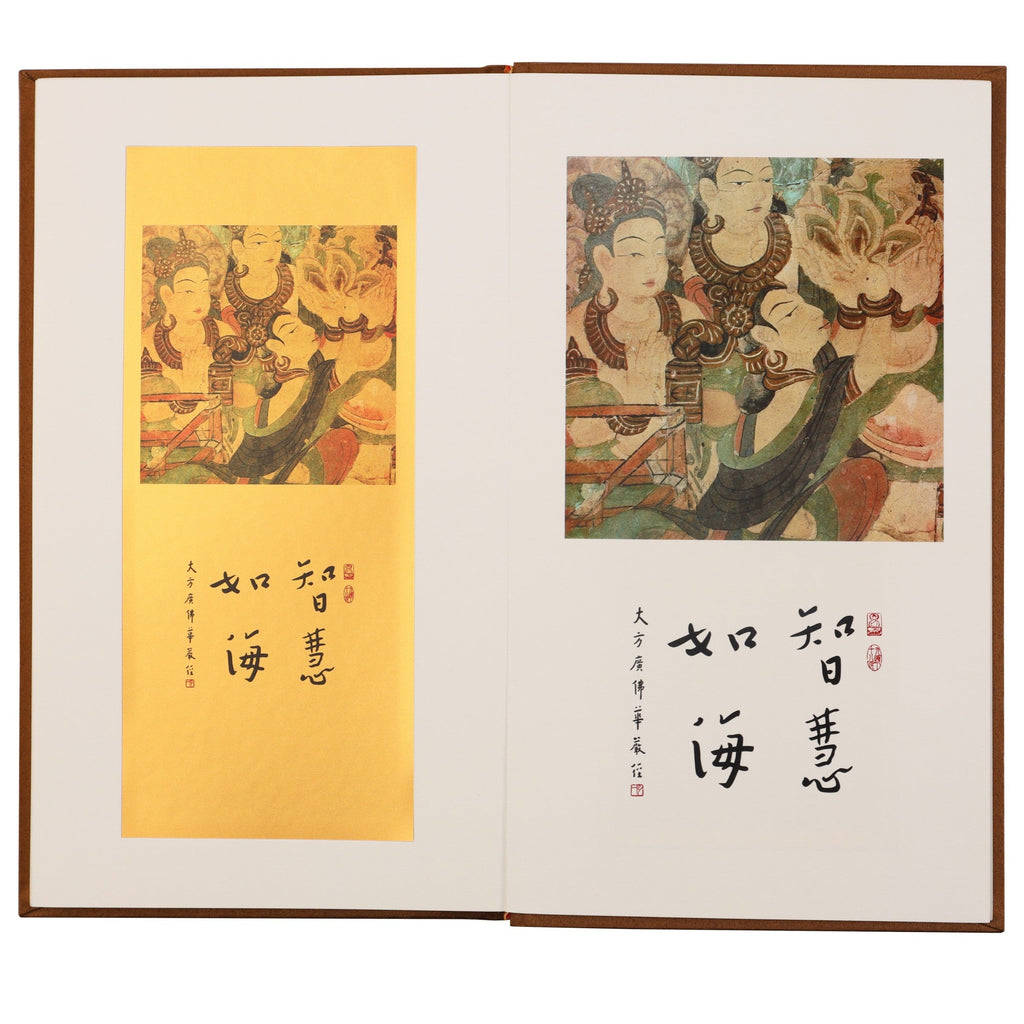 智慧
如海
大方廣佛華嚴經
智慧
如海
大方廣佛華嚴經